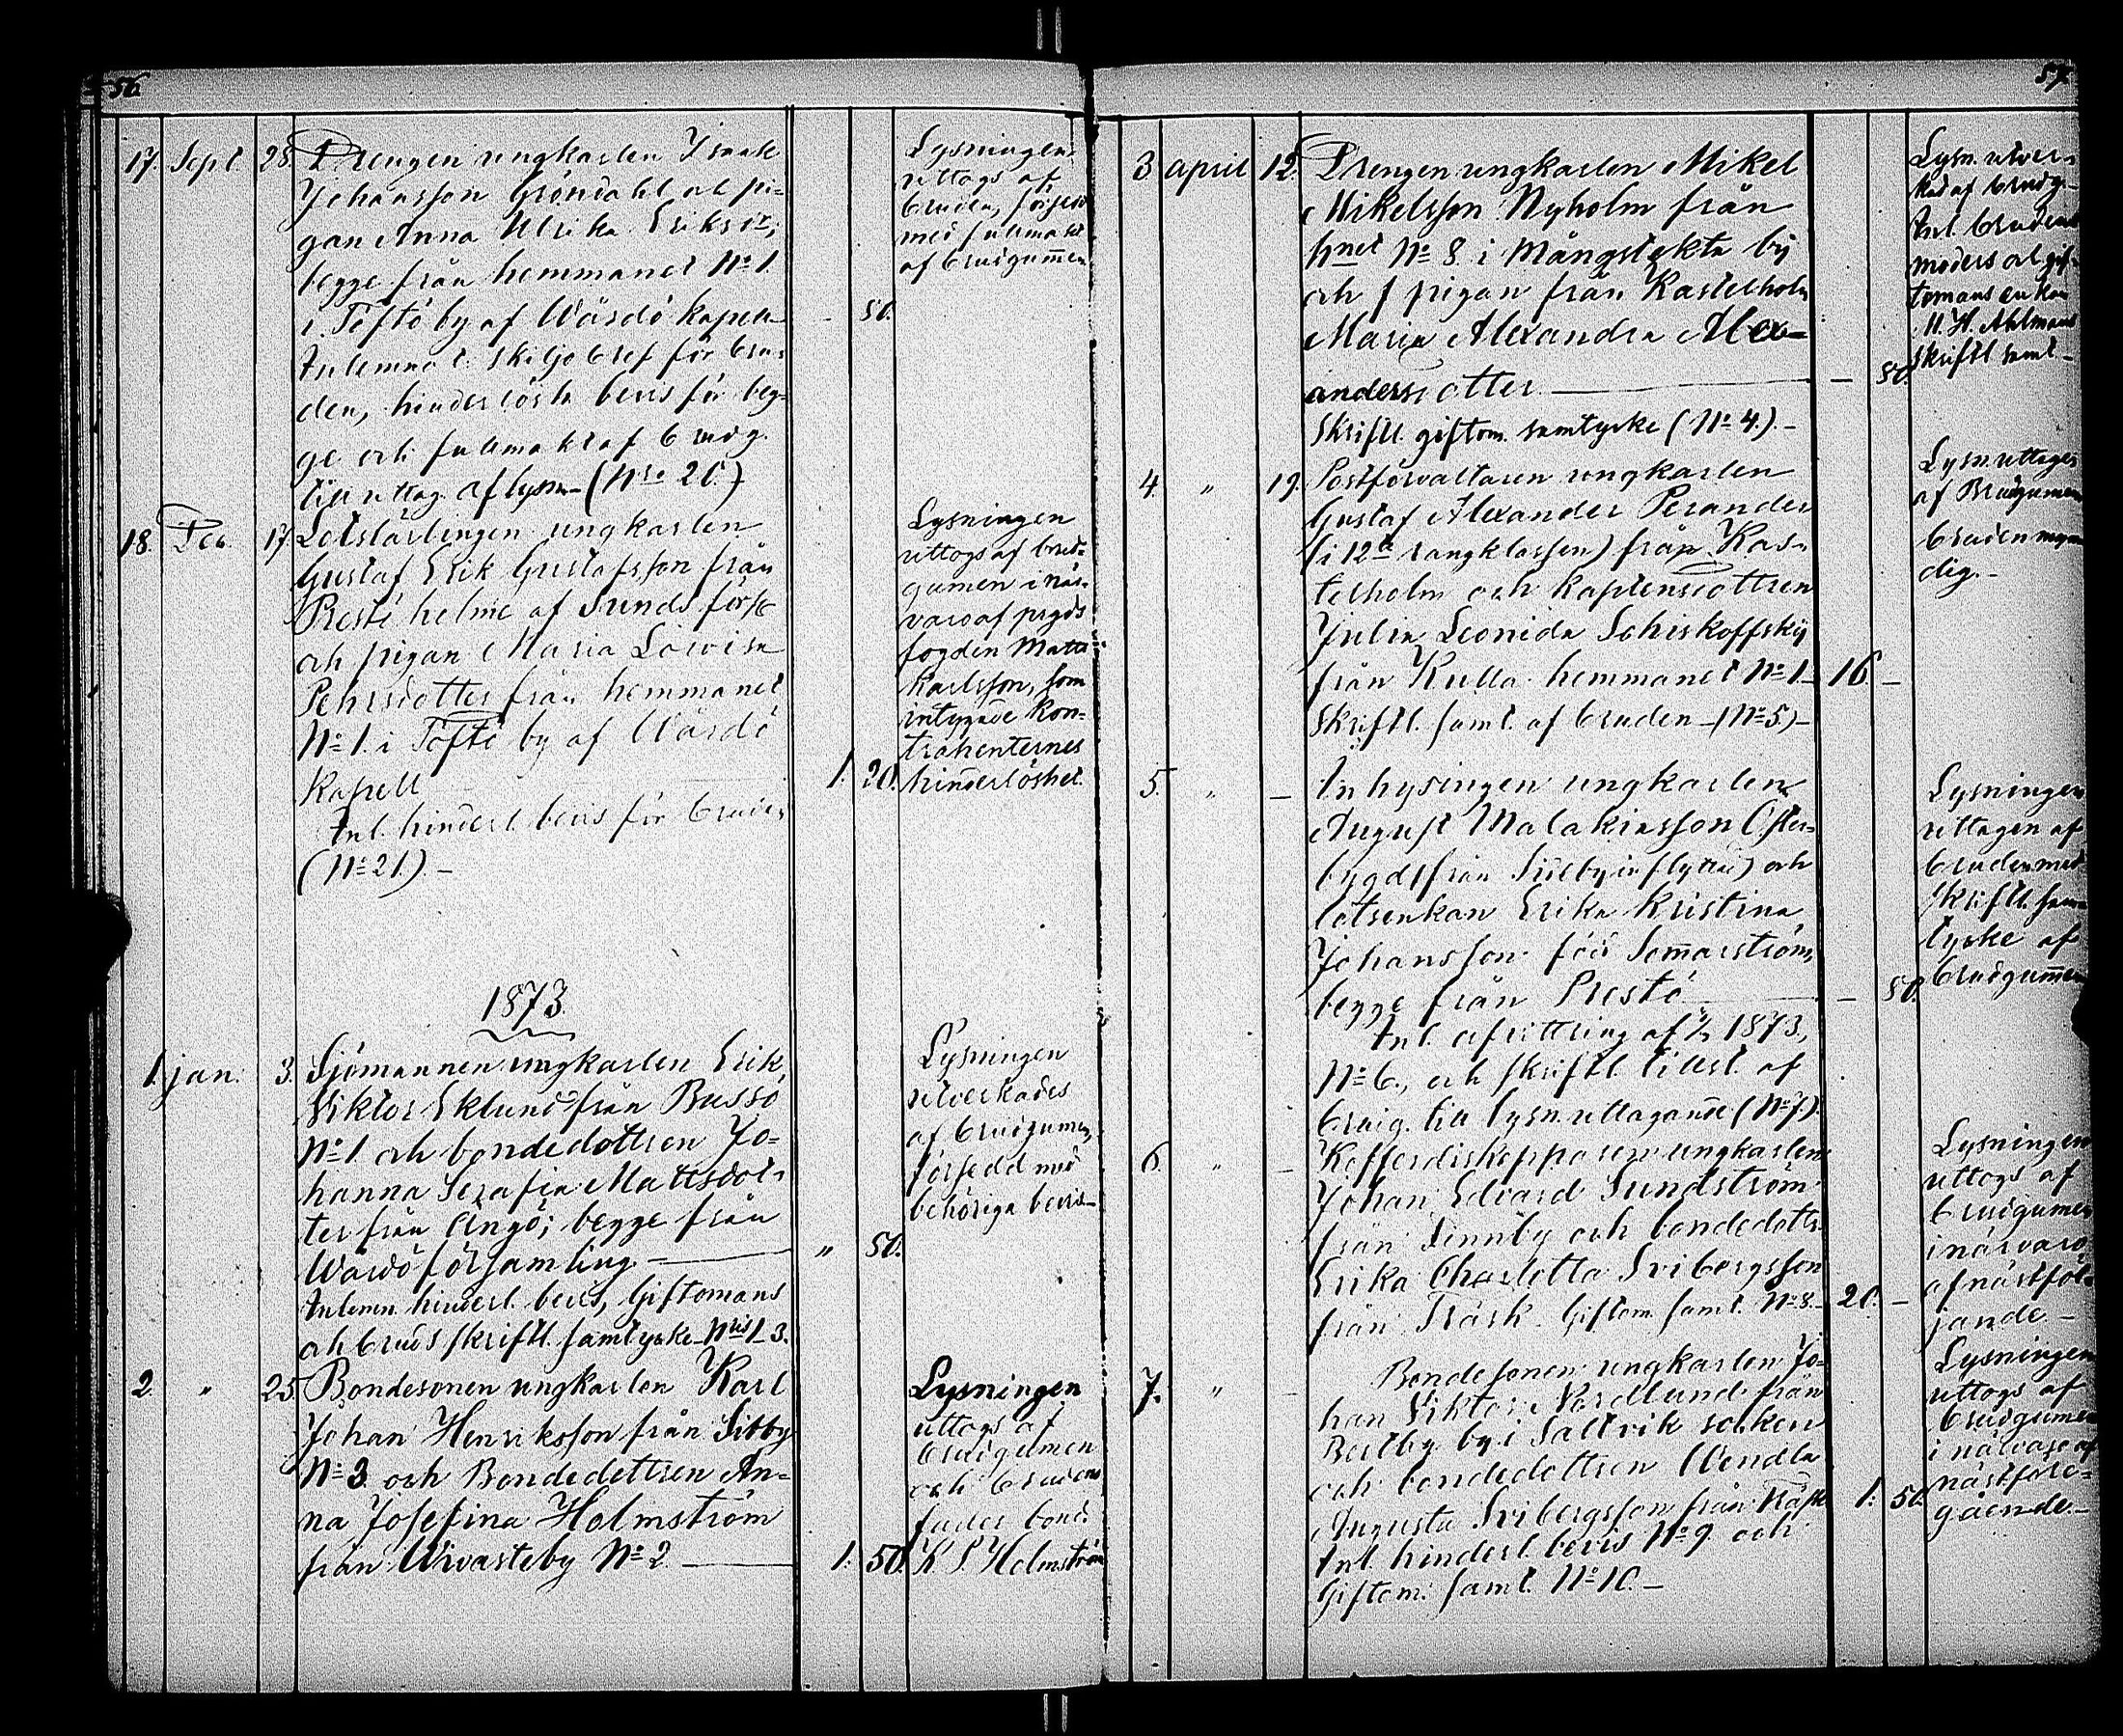 56.
17. Sept. 28. Drengen ungkarlen Isaak
Johansson Gröndahl och pi-
gan Anna Ulrika Eriksdr,
begge från hemmanet No 1.
i Töftö by af Wårdö kapell — 80.
Inlemnat: skiljobref för bru-
den, hinderlösh. bevis för beg-
ge och fullmakt af brudg.
till uttag. af lysn. — (Nro 20.)
Lysningen
uttogs af
bruden, försedd
med fullmakt
af brudgummen
18. Dec. 17. Lotslärlingen ungkarlen
Gustaf Erik Gustafsson från
Prestö holme af Sunds förs.
och pigan Maria Lovisa
Pehrsdotter från hemmanet
No 1. i Töftö by af Wårdö
Kapell 1. 20.
Inl. hinderl. bevis för bruden
(No 21.). —
Lysningen
uttogs af brud-
gumen i när-
varo af prgds
fogden Matts
Karlsson, som
intygade kon-
trahenternes
hinderlöshet.
1873.
1. jan. 3. Sjömannen ungkarlen Erik
Viktor Eklund från Bussö
No 1. och bondedottren Jo-
hanna Serafia Mattsdot-
ter från Ängö; begge från
Wårdö församling — „ 80.
Inlemn. hinderl. bevis, Giftomans
och bruds skriftl. samtycke Nris 1–3.
Lysningen
utverkades
af brudgumen,
försedd med
behöriga bevis —
2. „ 25. Bondesonen ungkarlen Karl
Johan Henriksson från Sibby
No 3. och Bondedottren An-
na Josefina Holmström
från Wivasteby No 2 — 1. 50.
Lysningen
uttogs af
brudgumen
och brudens
fader bond.
K. S. Holmström
57.
3 april 12. Drengen ungkarlen Mikel
Mikelsson Nyholm från
hnet No 8 i Mångstekta by
och pigan från Kastelholm
Maria Alexandra Alex-
andersdotter — — 80.
Skriftl. giftom. samtycke (No 4.) —
Lysn. utver-
kad af brudg. —
Inl. brudens
moders och gif-
tomans enkan
M. H. Ahlmans
skriftl samt —
4. „ 19. Postförvaltaren ungkarlen
Gustaf Alexander Perander
(i 12te rangklassen) från Kas-
telholm och kaptensdottren
Julia Leonida Schiskoffsky
från Kulla hemmanet No 1. — 16. —
Skriftl. samt. af bruden — (No 5) —
Lysn. uttages
af Brudgumen
bruden myn-
dig. —
5. „ — Inhysingen ungkarlen
August Malakiasson (Öster-
bygd, från Sibby inflyttad) och
lotsenkan Erika Kristina
Johansson född Somarström,
begge från Prestö — — 80.
Inl. afvittring af 1873,
No 6., och skriftl. tillst. af
brudg. till lysn. uttagande (No 7.).
Lysningen
uttagen af
bruden med
skriftl. sam-
tycke af
brudgummen
6. „ — Kofferdiskepparen ungkarlen
Johan Edvard Sundström
från Finnby och bondedottr.
Erika Charlotta Svibergsson
från Träsk. Giftom. samt. No 8. — 20. —
Lysningen
uttogs af
brudgumen
i närvaro
af nästföl-
jande. —
7. „ — Bondesonen ungkarlen Jo-
han Viktor Nordlund från
Bertby by i Saltvik socken
och bondedottren Wendla
Augusta Svibergsson från Träsk 1. 50.
Inl. hinderl. bevis No 9. och
Giftom. samt. No 10. —
Lysningen
uttogs af
brudgumen
i närvaro af
nästföre-
gående. —